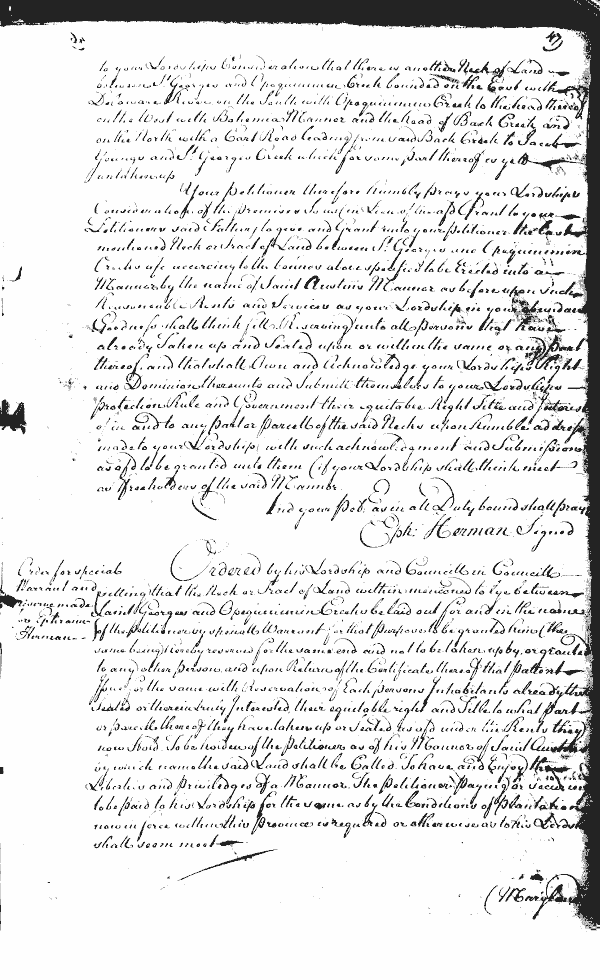 47
to your Lordships Consideration that there is another Neck of Land
between St. Georges and Opoquimimin Creek bounded on the East with
Delaware River on the South with Opoquimimin Creek to the head thereof
on the West with Bohemia Mannor and the head of Back Creek and
on the North with a Cart Road leading from said Back Creek to Jacob
Youngs and St. Georges Creek which for some part thereof is yett
untaken up
Your Petitioner therefore humbly prays your Lordships
Consideration of the premises to us in Lieu of the afd Grant to your
Petitioners said Father to give and Grant unto your petitioner the last
mentioned Neck or Tract of Land between St. Georges and Opequimimin
Creeks afd according to the bounds above specified to be Erected into a
Mannor by the name of Saint Austins Mannor as before upon such
Reasonable Rents and Services as your Lordship in your abundant
Goodness shall think fitt. Reserving unto all persons that have
already taken up and Seated upon or within the same or any part
thereof, and that shall Own and Acknowledge your Lordships Right
and Dominion thereunto and Submitt themselves to your Lordships
protection Rule and Government their equitable Right Title and Interest
of in and to any part or parcell of the said Neck upon humble address
made to your Lordship with such acknowledgement and Submission
as afd to be granted unto them (if your Lordship shall think meet
as freeholders of the said Mannor
And your Petr. as in all Duty bound shall pray
Eph: Herman Signed
Order for special
Warrant and
made
Ephraim
Herman
Ordered by his Lordship and Councill in Councill
that the Neck or Tract of Land within mentioned to lye between
Saint Georges and Opequimimin Creeks be laid out for and in the name
of the Petitioner by speciall Warrant for that purpose to be granted him (the
same being hereby reserved for the same end and not to be taken up by, or granted
to any other person, and upon Return of the Certificate thereof that Pattent
Issue for the same with Reservation of Each persons Inhabitants already
seated or therein truly Interested, their equitable right and Title to what part
or parcell thereof they have taken up or Seated as afd under the Rents they
now Hold. To be holden of the Petitioner as of his Mannor of Saint Austins
by which name the said Land shall be Called To have and Enjoy the
Liberties and priviledges of a Mannor. The Petitioner paying or securing
to be paid to his Lordship for the same as by the Conditions of Plantation
now in force within this Province is required or otherwise as to his Lordsp
shall seem meet
(Maryland